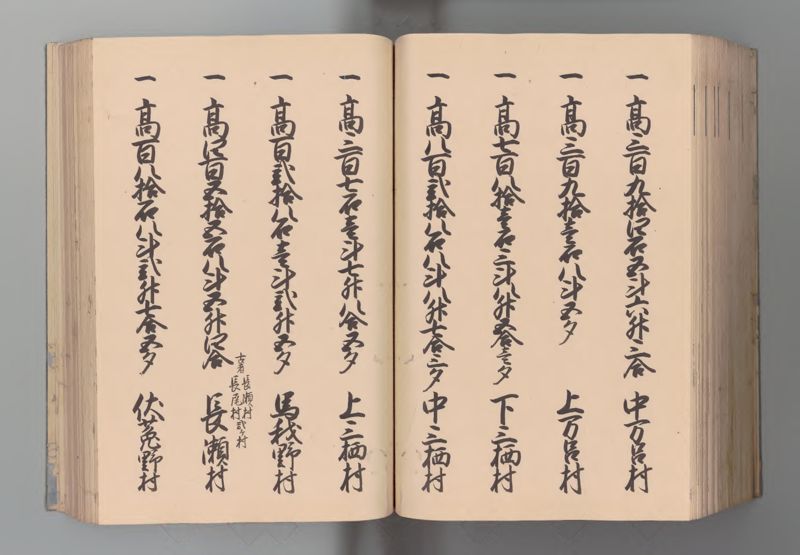 一 高三百九拾四石五斗六升三合 中万呂村
一 高三百九拾壱石八斗五夕 上万呂村
一 高七百八拾壱石三斗八升五合三夕 下三栖村
一 高八百弐拾八石八斗八升七合三夕 中三栖村
一 高三百七石壱斗七升八合五夕 上三栖村
一 高百弐拾八石壱斗弐升五夕 馬我野村
一 高四百五拾五石八斗五升四合 長瀬村
古者 長瀬村
長尾村 弐ケ村
一 高百八拾石八斗弐升七合五夕 伏菟野村